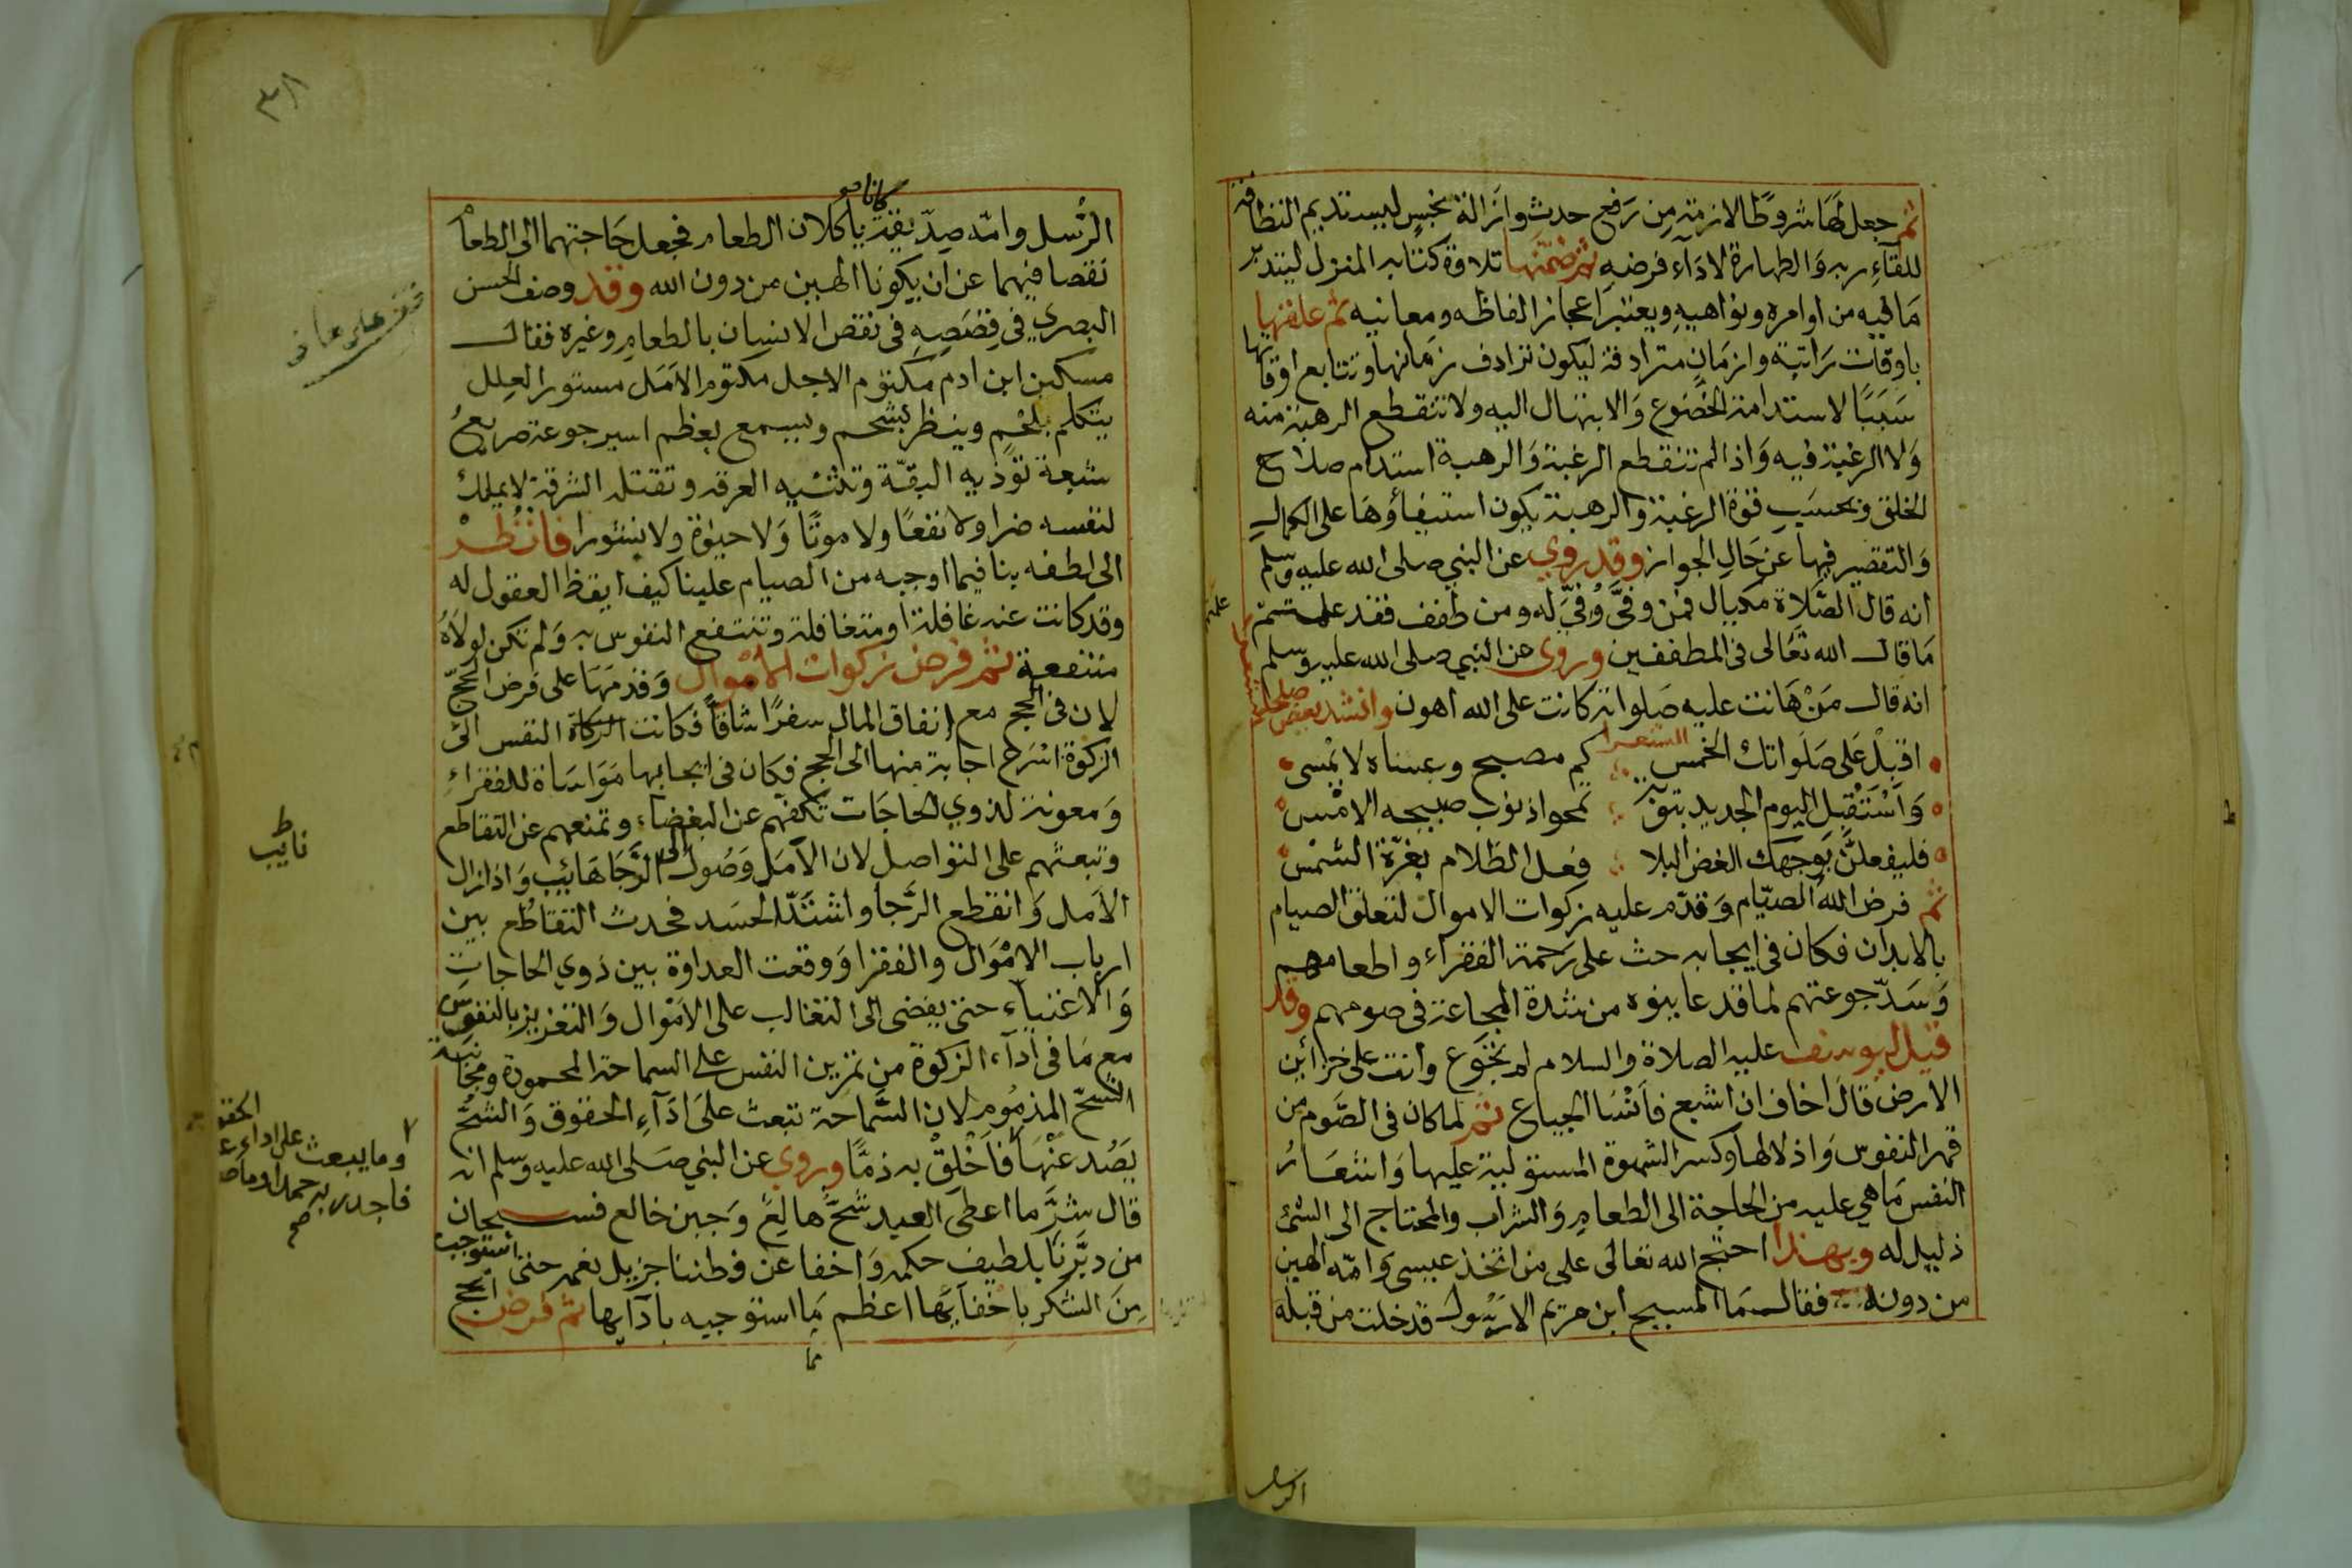 ثم جعل لها شروطا لازمة من رفع حدث وازالة نجس ليستديم النظافة
للقاء ربه والطهارة لاداء فرضه ثم ضمنها تلاوة كتابه المنزل ليتدبر
ما فيه من اوامره ونواهيه ويعتبر اعجاز الفاظه ومعانيه ثم علقها
باوقات راتبة وازمان مترادفة ليكون ترادف زمانها وتتابع اوقاتها
سببا لاستدامة الخضوع والابتهال اليه ولا تنقطع الرهبة منه
ولا الرغبة فيه واذا لم تنقطع الرغبة والرهبة استدام صلاح
الخلق وبحسب قوة الرغبة والرهبة يكون استيفاؤها على الكمال
والتقصير فيها عن حال الجواز وقد روي عن النبي صلى الله عليه وسلم
انه قال الصلاة مكيال فمن وفّى وُفّي له ومن طفف فقد علمتم
ما قال الله تعالى في المطففين وروي عن النبي صلى الله عليه وسلم
انه قال من هانت عليه صلواته كانت على الله اهون وانشد بعض
اقبل على صلواتك الخمس كم مصبح وعساه لا يمسى
واستقبل اليوم الجديد بتوبة تمحو اذنوب صبيحه الامس
فليفعلن بوجهك الغض البلا فعل الظلام بغرة الشمس
ثم فرض الله الصيام وقدم عليه زكوات الاموال لتعلق الصيام
بالابدان فكان في ايجابه حث على رحمة الفقراء واطعامهم
وسد جوعتهم لما قد عاينوه من شدة المجاعة في صومهم وقد
قيل ليوسف عليه الصلاة والسلام لم تجوع وانت على خزائن
الارض قال اخاف ان اشبع فانسا الجياع ثم لما كان في الصوم من
قهر النفوس واذلالها وكسر الشهوة المستولية عليها واشعار
النفس ما هي عليه من الحاجة الى الطعام والشراب والمحتاج الى الشئ
ذليل له وبهذا احتج الله تعالى على من اتخذ عيسى وامه الهين
من دونه فقال ما المسيح ابن مريم الا رسول قد خلت من قبله
الرسل
الرسل وامه صديقة يأكلان الطعام فجعل حاجتهما الى الطعام
كانا
نقصا فيهما عن ان يكونا الهين من دون الله وقد وصف الحسن
البصري في قصصه في نقص الانسان بالطعام وغيره فقال
مسكين ابن ادم مكتوم الاجل مكتوم الامل مستور العلل
يتكلم بلحم وينظر بشحم ويسمع بعظم اسير جوعة صريع
شبعة تؤذيه البقة وتنتنه العرقه وتقتله الشرقة لا يملك
لنفسه ضرا ولا نفعا ولا موتا ولا حيوة ولا نشورا فانظر
الى لطفه بنا فيما اوجبه من الصيام علينا كيف ايقظ العقول له
وقد كانت عنه غافلة او متغافلة وتنتفع النفوس به ولم تكن لولاه
منتفعة ثم فرض زكوات الاموال وقدمها على فرض الحج
لان في الحج مع انفاق المال سفرا شاقا فكانت النفس الى
الزكوة اسرع اجابة منها الى الحج فكان في ايجابها مواساة للفقراء
ومعونة لذوي الحاجات تكفهم عن البغضاء وتمنعهم عن التقاطع
وتبعثهم على التواصل لان الآمل وصول الى الرجا هائب واذا زال
الامل وانقطع الرجا واشتد الحسد فحدث التقاطع بين
ارباب الاموال والفقرا ووقعت العداوة بين ذوي الحاجات
والاغنياء حتى يفضى الى التغالب على الاموال والتغرير بالنفوس
مع ما في اداء الزكوة من تمرين النفس على السماحة المحمودة ومجانبة
الشح المذموم لان السماحة تبعث على اداء الحقوق والشح
يصد عنها فاخلق به ذما وروي عن النبي صلى الله عليه وسلم انه
قال شر ما اعطى العبد شح هالع وجبن خالع فسبحان
من دبرنا بلطيف حكمه واخفا عن فطنتنا جزيل نعمه حتى استوجب
من الشكر باخفائها اعظم ما استوجبه بابدائها ثم فرض الحج
نائب
وما يبعث على اداء
فاجدر به حمدا
صح